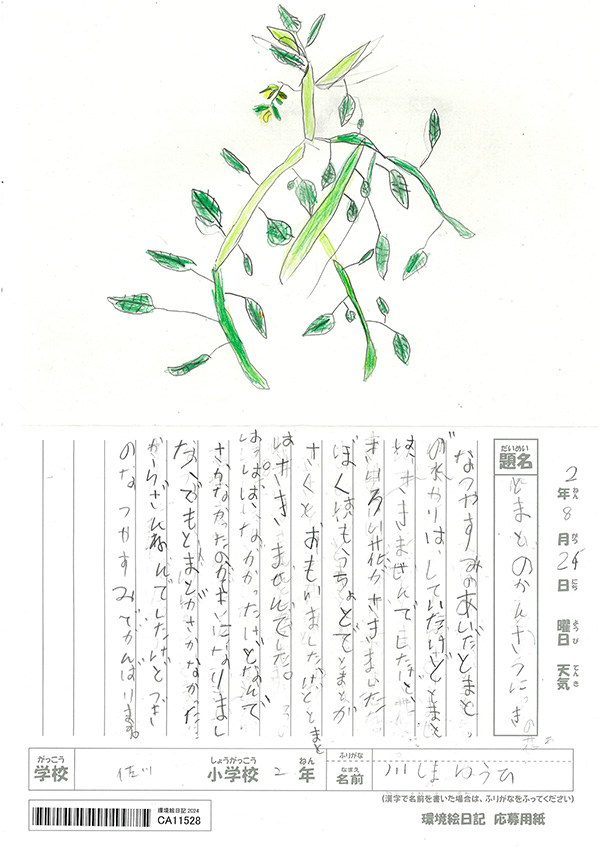 2年8月24日 曜日 天気
ねん がつ にち ようび てんき
だいめい
題名
とまとのかんさつにっき
なつやすみのあいだとまと
の水やりは、していたけどとまと
は、さきませんでしたけど、
きいろい花がさきました。
ぼくはもうちょとでとまとが
さくとおもいましたけどとまと
は、さきませんでした。
はっぱは、ながかったけどなんで
さかなかったのかきになりまし
た。でもとまとがさかなかった
からざんねんでしたけどつぎ
のなつやすみでがんばります。
がっこう しょうがっこう ねん
学校 佐川 小学校 2年
ふりがな
なまえ
名前 川しまゆうひ
(漢字で名前を書いた場合は、ふりがなをふってください)
環境絵日記 2024
CA11528
環境絵日記 応募用紙